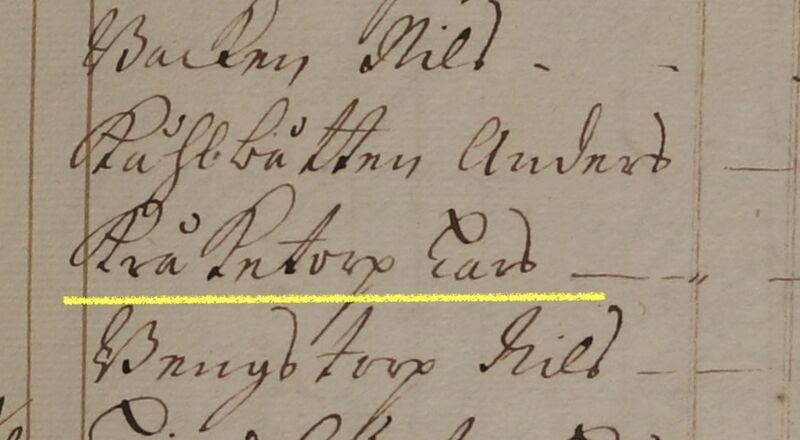 Backen Nils - -
Kåhlbåtten Anders —
Kråketorp Lars — - „ -
Bengstorp Nils — —